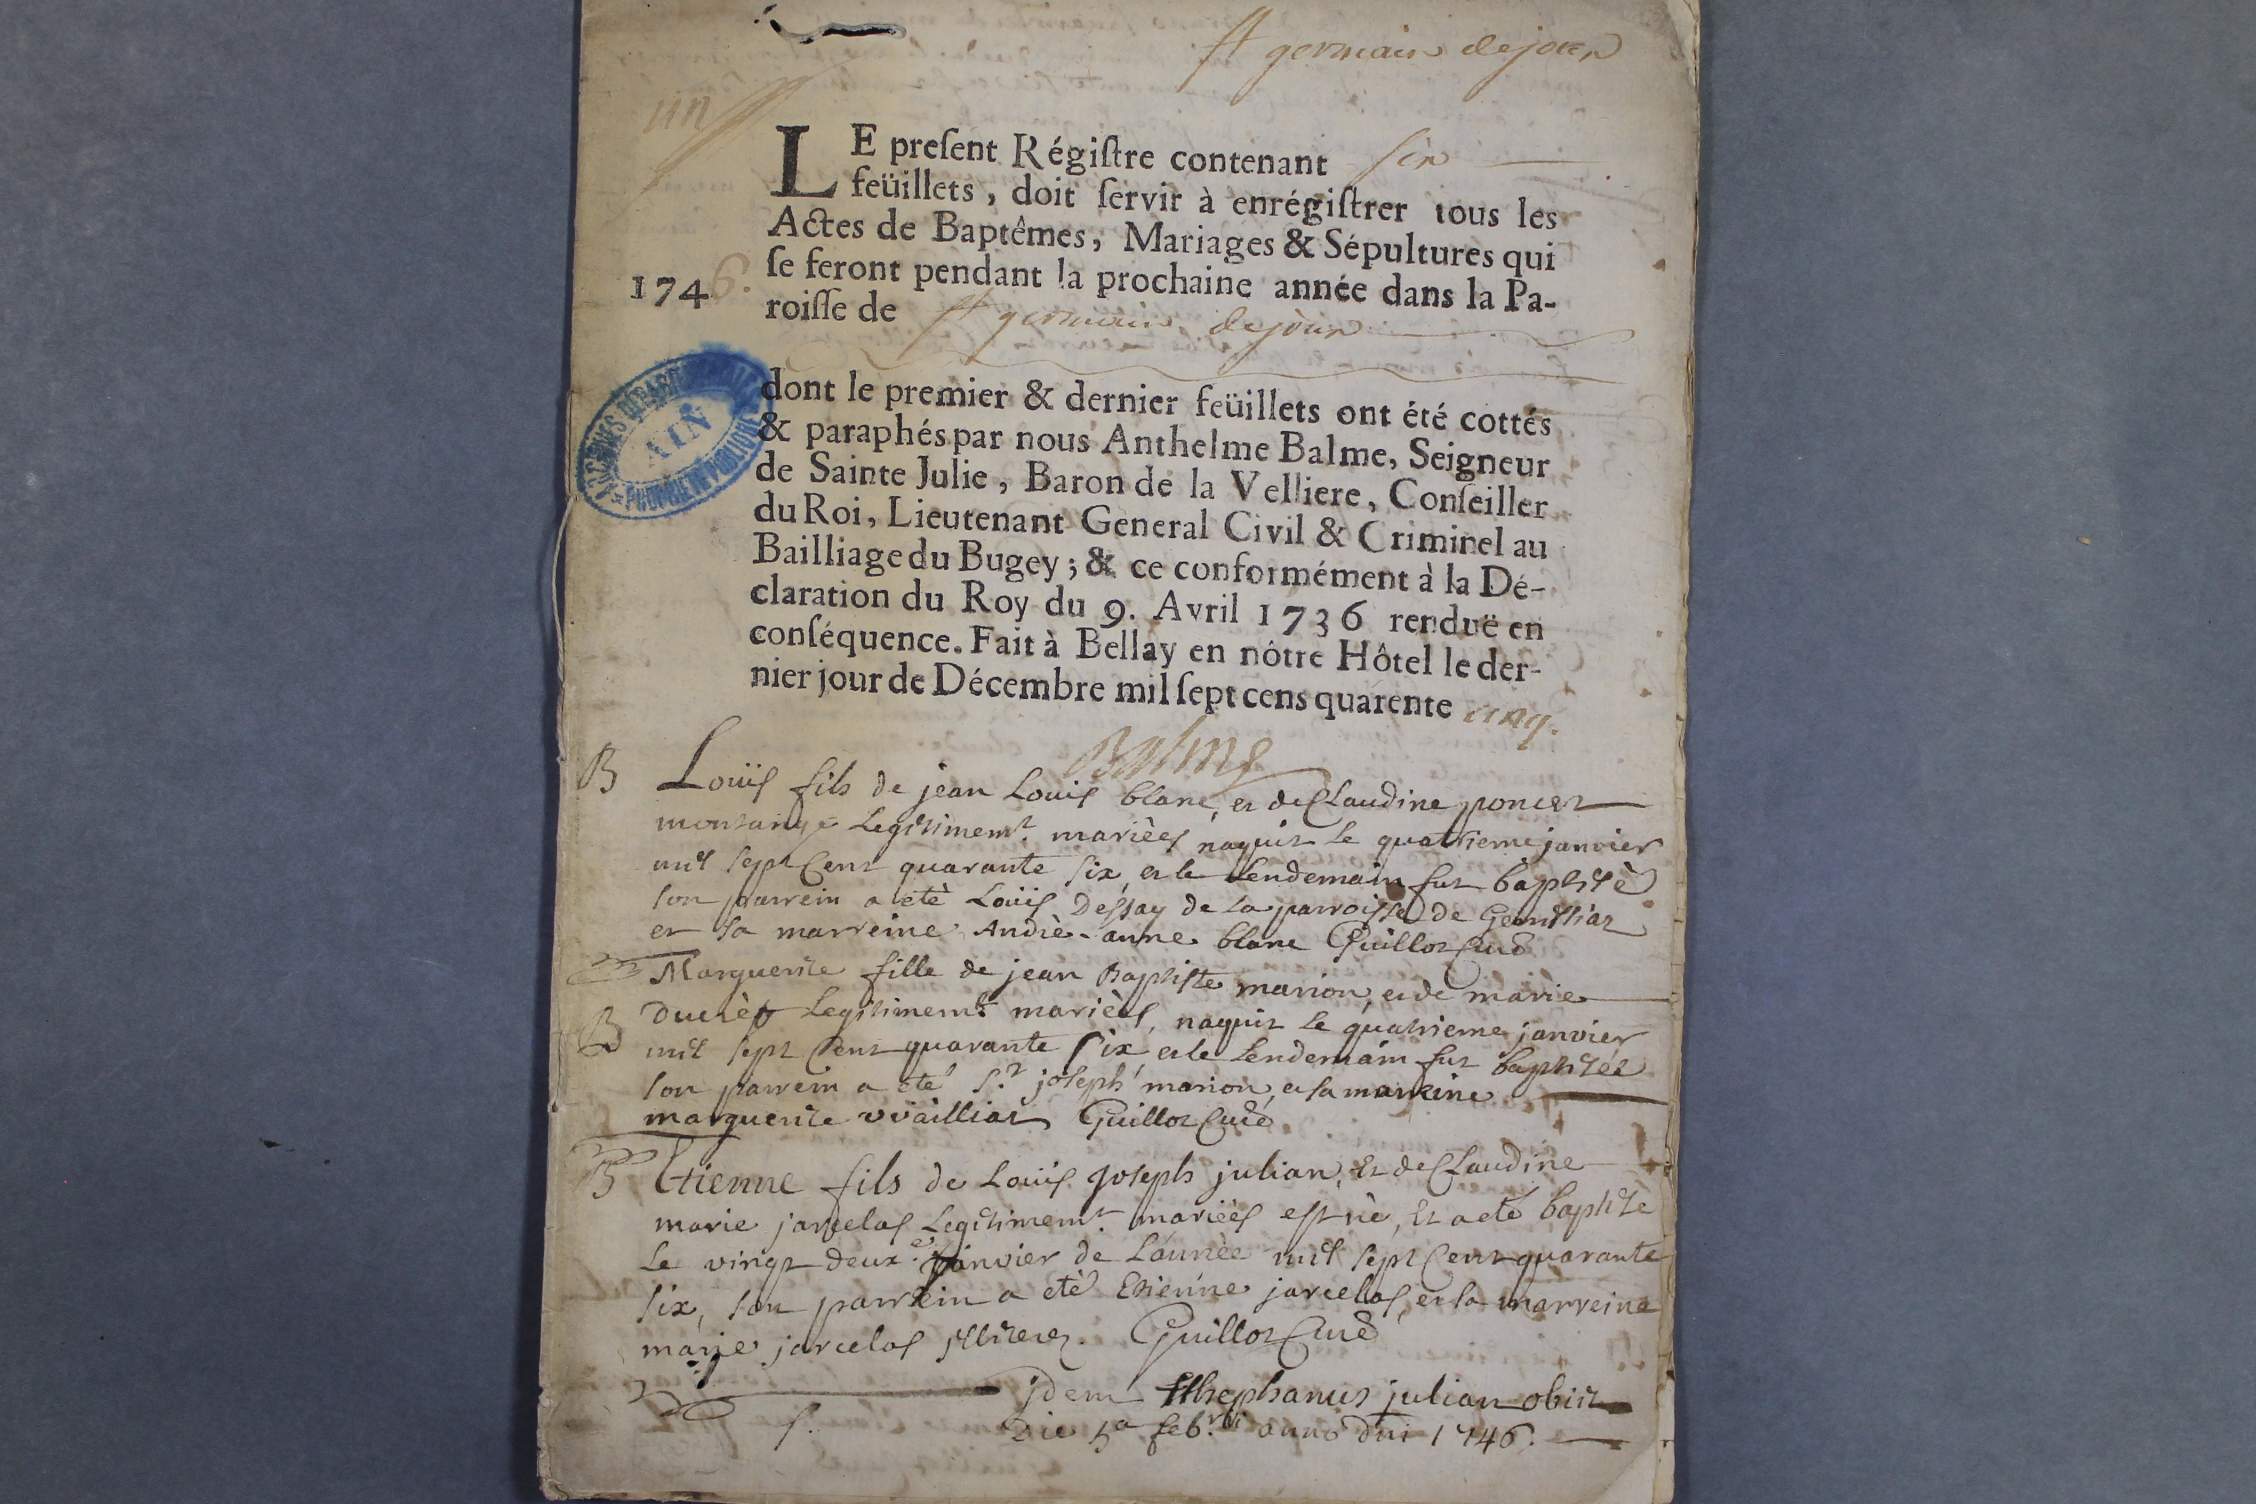 St germain dejoux
un
LE preſent Régiſtre contenant six
feüillets, doit ſervir à enrégiſtrer tous les
Actes de Baptêmes, Mariages & Sépultures qui
ſe feront pendant la prochaine année dans la Pa-
1746.
roiſſe de St germain dejoux
dont le premier & dernier feüillets ont été cottés
& paraphés par nous Anthelme Balme, Seigneur
de Sainte Julie, Baron de la Velliere, Conſeiller
du Roi, Lieutenant General Civil & Criminel au
Bailliage du Bugey; & ce conformément à la Dé-
claration du Roy du 9. Avril 1736 renduë en
conſéquence. Fait à Bellay en nôtre Hôtel le der-
nier jour de Décembre mil ſept cens quarente cinq.
ARCHIVES DEPARTEMENTALES
AIN
PROPRIÉTÉ PUBLIQUE
Balme
B Loüis fils de jean Louis blanc, et de Claudine poncet
montange Legitimemt. mariées naquit le quatrieme janvier
mil sept Cent quarante six, et le Lendemain fut baptisè
son parrein a etè Loüis Dessay de la parroisse de
et sa marreine Andrè-anne blanc Guillot Curé
Marguerite fille de jean Baptiste marion, et de marie
B Ducrèt Legitimemt. mariées, naquit le quatrieme janvier
mil sept Cent quarante six et le Lendemain fut baptisée
son parrein a eté Sr. joseph marion, et sa marreine
marguerite vvailliat Guillot Curé
B Etienne fils de Louis Joseph julian, Et de Claudine
marie jarcelas Legitimemt. mariées est nè, Et a eté baptisé
Le vingt deuxe. janvier de L'année mil sept Cent quarante
six, son parrein a eté Etienne jarcelas, et la marreine
marie jarcelas illiterez. Guillot Curé
jdem Sthephanus julian obiit
S. Die 5a feb.rii anno dni 1746.